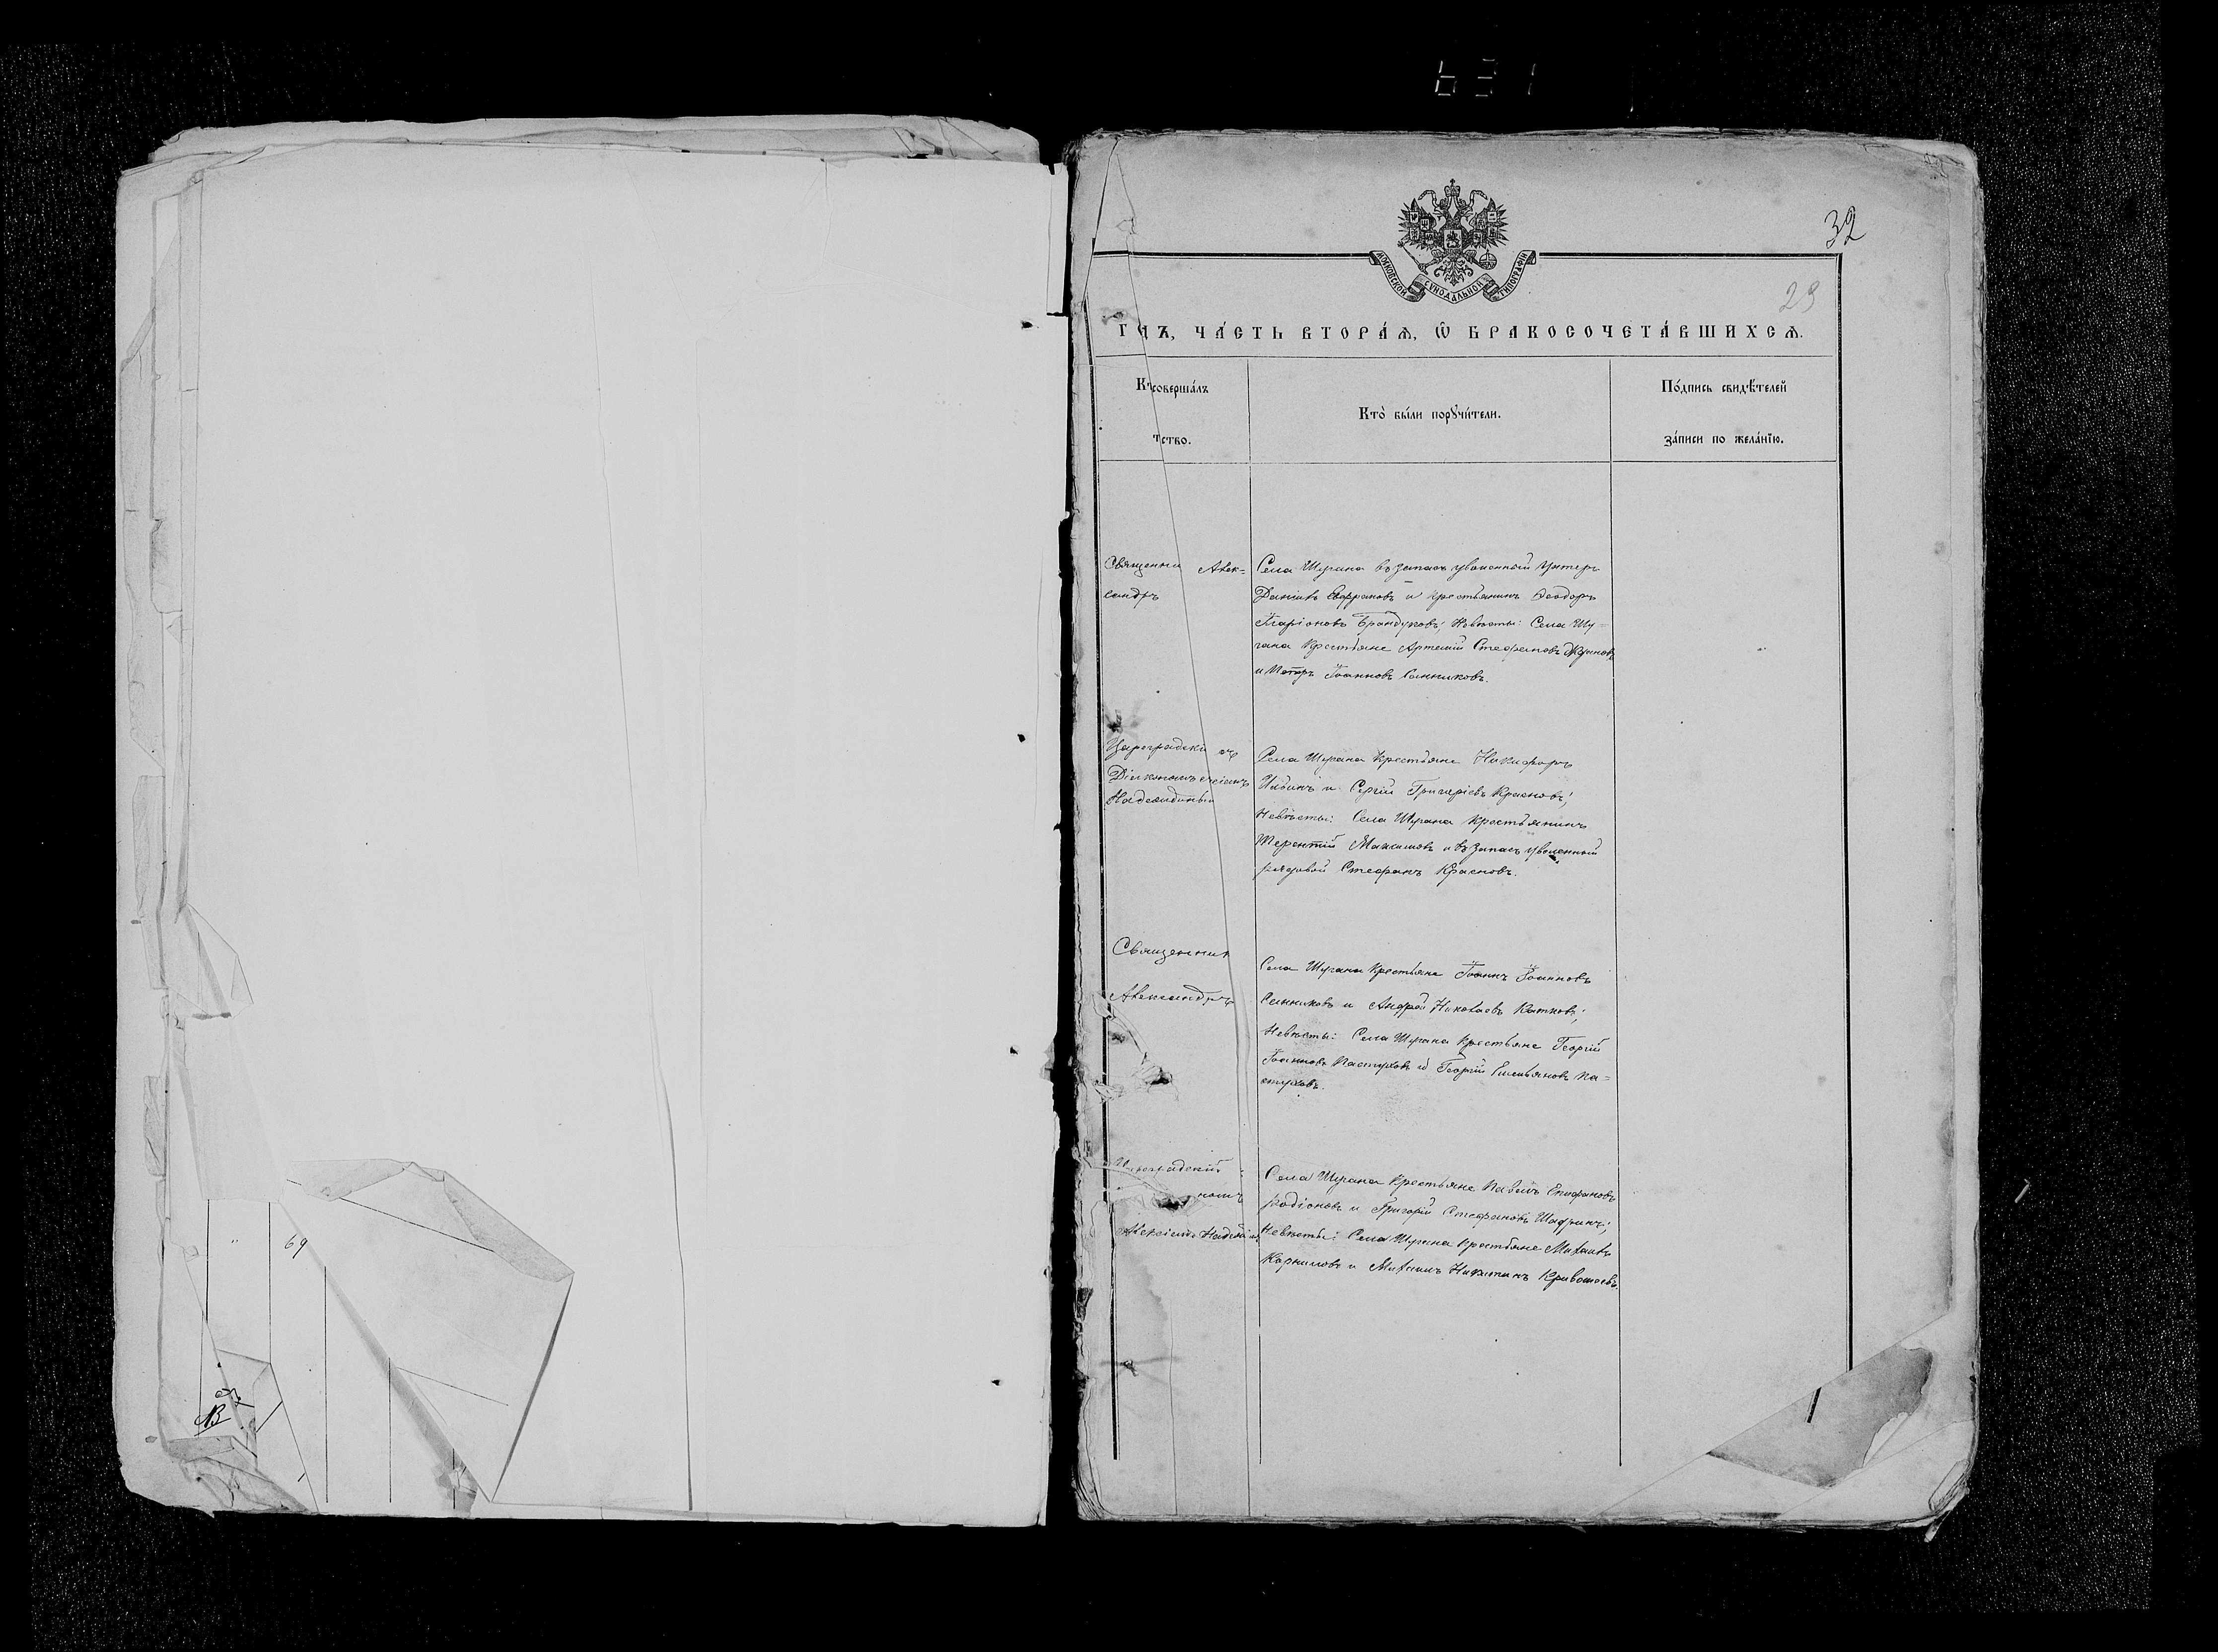 631
32
29
МОСКОВСКОЙ СѴНОДАЛЬНОЙ ТИПОГРАФІИ
ЧА́СТЬ ВТОРА́Ѧ, Ѡ҆ БРАКОСОЧЕТА́ВШИХСѦ.
совершáлъ
тство.
Кто̀ бы́ли порꙋчи́тели.
По́дпись свидѣ́телей
за́писи по жела́нїю.
Священни Алек=
сандръ
Села Шугана въ запасъ уволенный унтеръ
Даніилъ и крестьянинъ Ѳеодоръ
Иларіоновъ Брандуковъ; Невѣсты: Села Шу=
гана Крестьяне Артемій Стефановъ
и Петръ Іоанновъ Санниковъ.
Цареградскі
Діакономъ
Надеждинъ
Села Шугана Крестьяне Никифоръ
Ильинъ и Сергій Григоріевъ Красновъ;
Невѣсты: Села Шугана Крестьянинъ
Терентій Максимовъ и въ запасъ уволенный
рядовой Стефанъ Красновъ.
Священник
Александръ
Села Шугана Крестьяне Іоаннъ Іоанновъ
Санниковъ и Андрей Николаевъ Катковъ;
Невѣсты: Села Шугана Крестьяне Георгій
Іоанновъ Пастуховъ и Георгій Емельяновъ Па=
стуховъ.
номъ
Алексіемъ
Села Шугана Крестьяне Павелъ Епифановъ
Родіоновъ и Григорій Стефановъ Шафринъ;
Невѣсты: Села Шугана Крестьяне Михаилъ
Корниловъ и Михаилъ Никитинъ Кривошеевъ.
69